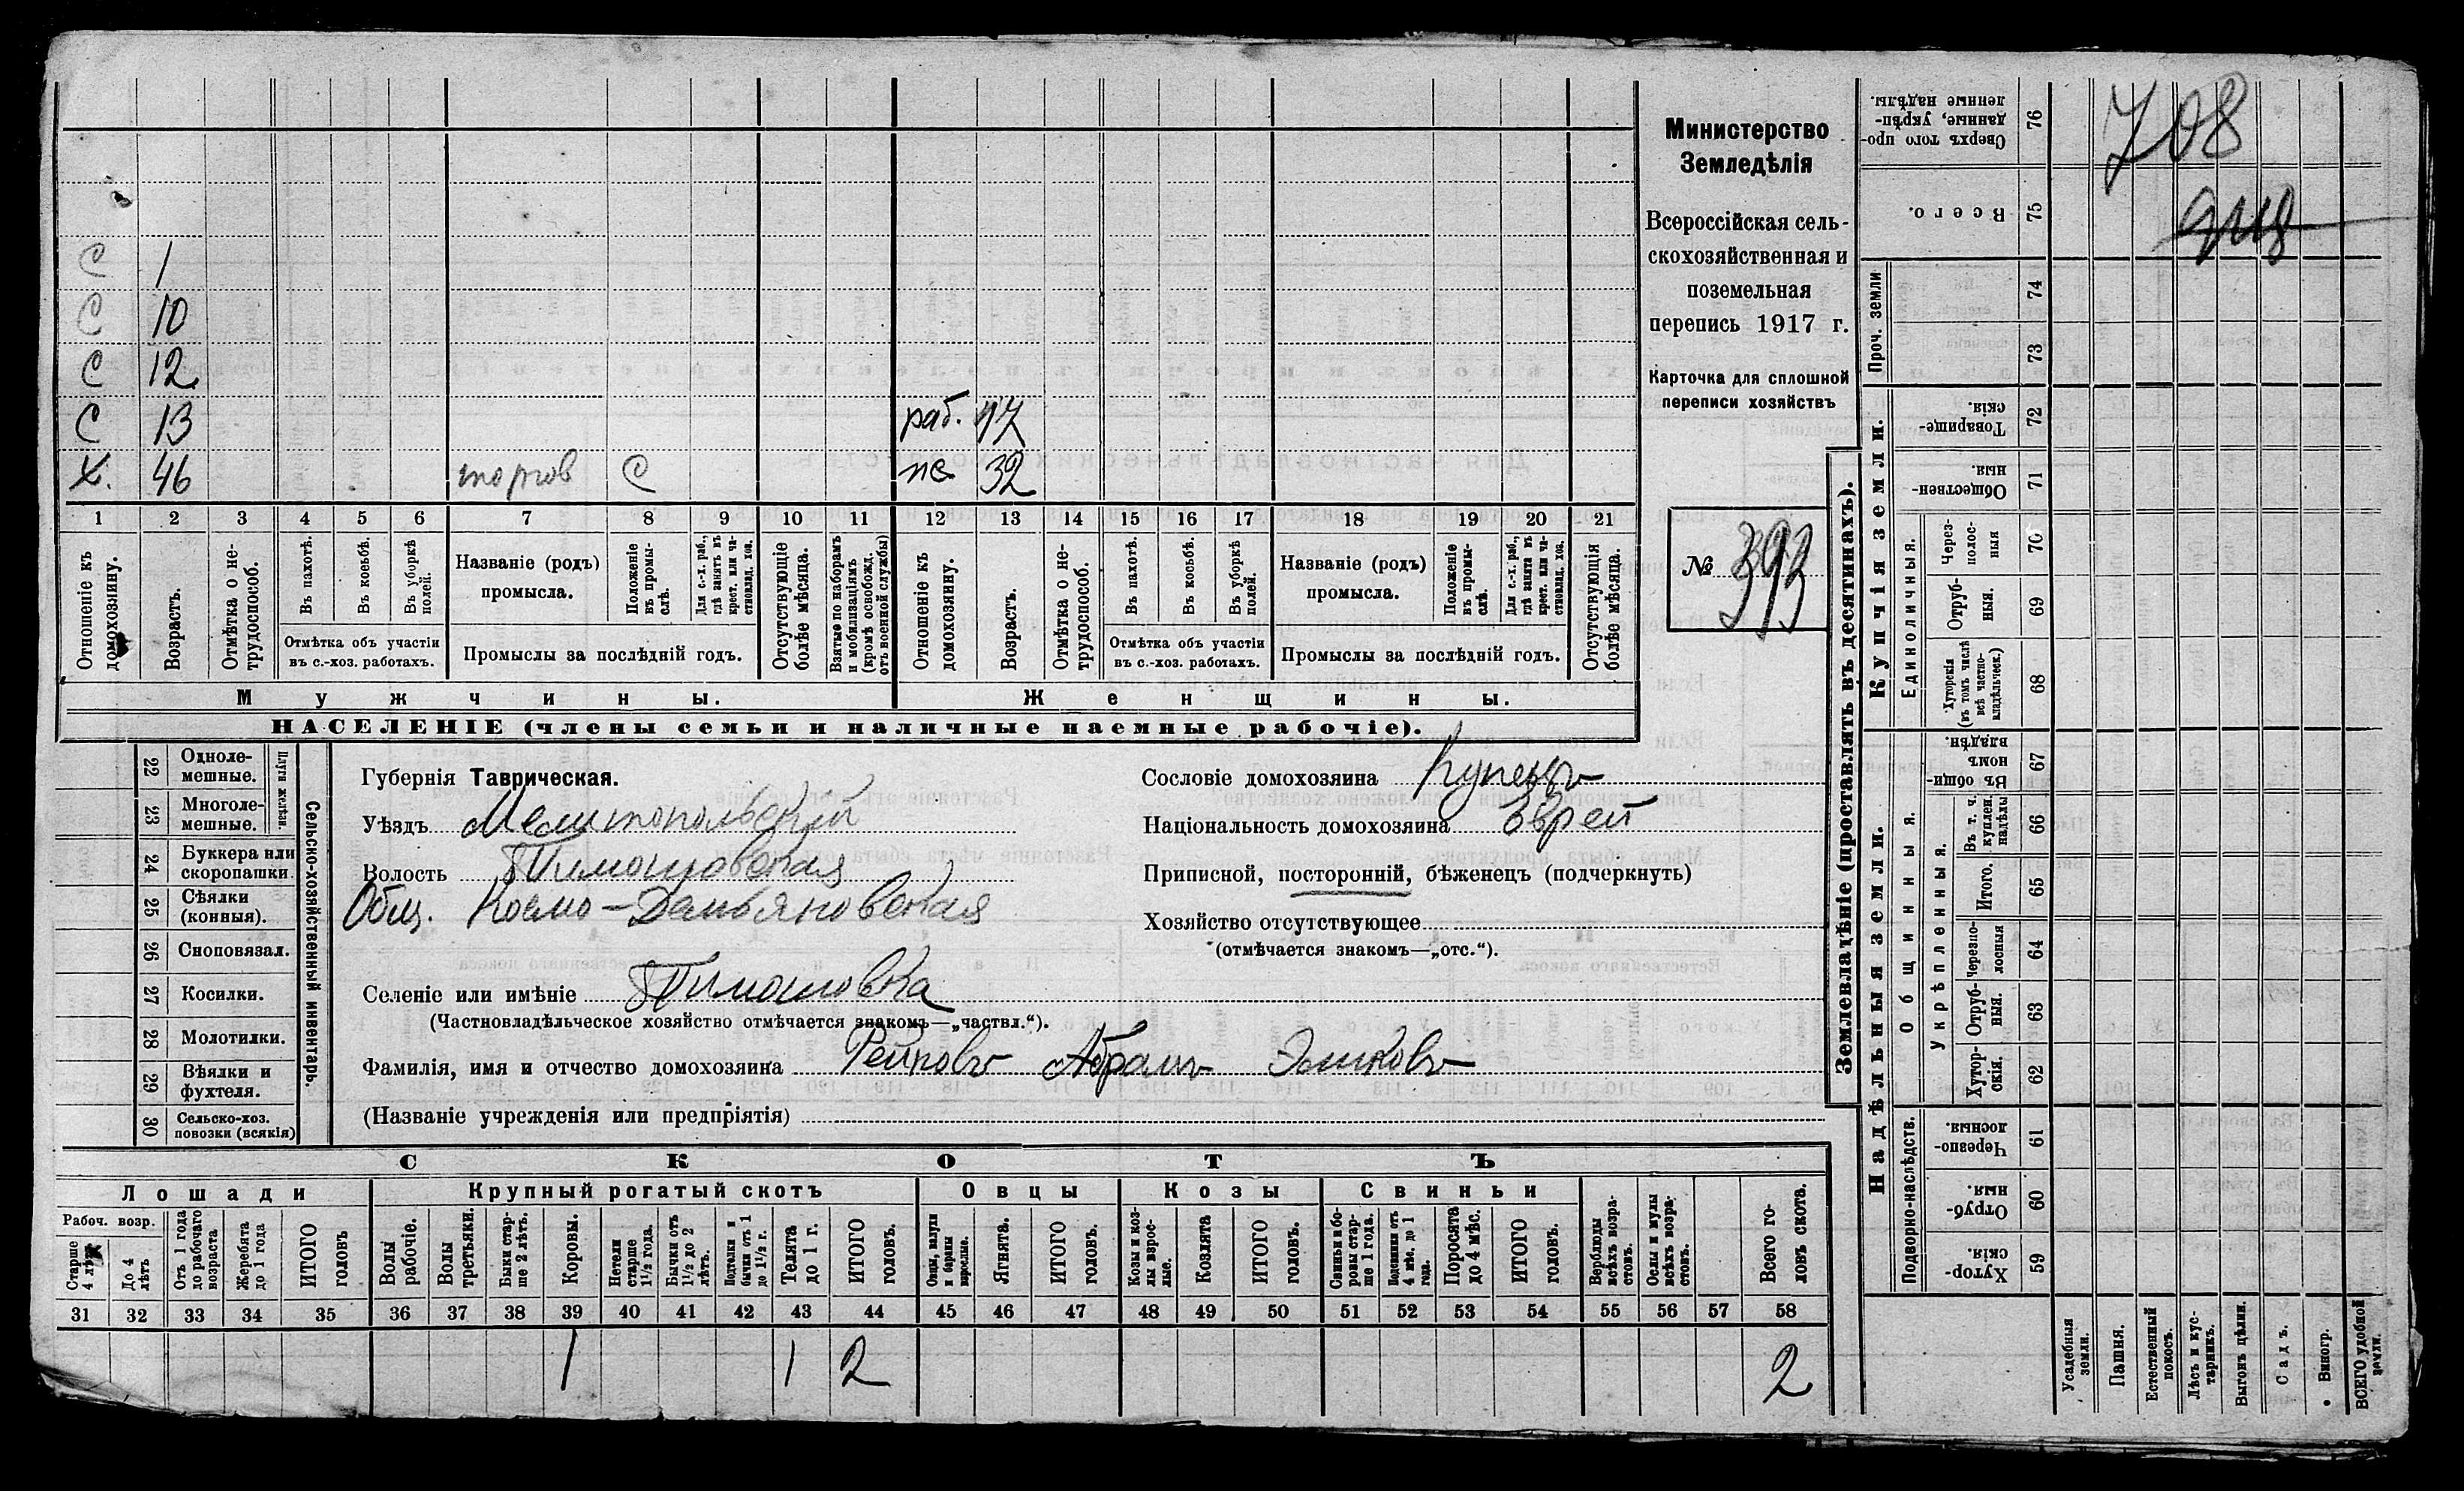 С 1
С 10
С 12
С 13 раб. 17
Х. 46 торгов С же 32
1 2 3 4 5 6 7 8 9 10 11 12 13 14 15 16 17 18 19 20 21
Отношеніе къ домохозяину.
Возрастъ.
Отмѣтка о не-трудоспособ.
Въ пахотѣ.
Въ косьбѣ.
Въ уборкѣ полей.
Отмѣтка объ участіи
въ с.-хоз. работахъ.
Названіе (родъ)
промысла.
Положеніе въ промы-слѣ.
Для с.-х. раб., гдѣ занятъ въ крест. или ча-стновлад. хоз.
Промыслы за послѣдній годъ.
Отсутствующіе болѣе мѣсяца.
Взятые по наборамъ и мобилизаціямъ (кромѣ освобожд. отъ военной службы)
Отношеніе къ домохозяину.
Возрастъ.
Отмѣтка о не-трудоспособ.
Въ пахотѣ.
Въ косьбѣ.
Въ уборкѣ полей.
Отмѣтка объ участіи
въ с.-хоз. работахъ.
Названіе (родъ)
промысла.
Положеніе въ промы-слѣ.
Для с.-х. раб., гдѣ занята въ крест. или ча-стновлад. хоз.
Промыслы за послѣдній годъ.
Отсутствующія болѣе мѣсяца.
Мужчины.
Женщины.
НАСЕЛЕНІЕ (члены семьи и наличные наемные рабочіе).
Министерство
Земледѣлія
Всероссійская сель-
скохозяйственная и
поземельная
перепись 1917 г.
Карточка для сплошной
переписи хозяйствъ
№ 393
22 Одноле-мешные.
23 Многоле-мешные.
Плуги желѣзн.
24 Буккера или скоропашки.
25 Сѣялки (конныя).
26 Сноповязал.
27 Косилки.
28 Молотилки.
29 Вѣялки и фухтеля.
30 Сельско-хоз. повозки (всякія)
Сельско-хозяйственный инвентарь.
Губернія Таврическая.
Уѣздъ Мелитопольскій
Волость Тимошовская
Общ. Космо-Дамьяновская
Селеніе или имѣніе Тимошовка
(Частновладѣльческое хозяйство отмѣчается знакомъ—„частвл.“).
Фамилія, имя и отчество домохозяина Рейковъ Абрамъ
(Названіе учрежденія или предпріятія)
Сословіе домохозяина Купецъ
Національность домохозяина Еврей
Приписной, посторонній, бѣженецъ (подчеркнуть)
Хозяйство отсутствующее
(отмѣчается знакомъ—„отс.“).
СКОТЪ
Лошади
Крупный рогатый скотъ
Овцы
Козы
Свиньи
Рабоч. возр.
Старше 4 лѣтъ
До 4 лѣтъ
Отъ 1 года до рабочаго возраста
Жеребята до 1 года
ИТОГО головъ
Волы рабочіе.
Волы третьяки.
Быки стар-ше 2 лѣтъ.
Коровы.
Нетели старше 1½ года.
Бычки отъ 1½ до 2 лѣтъ.
Подтелки и бычки отъ 1 до 1½ г.
Телята до 1 г.
ИТОГО головъ.
Овцы, валухи и бараны взрослые.
Ягнята.
ИТОГО головъ.
Козы и коз-лы взрос-лые.
Козлята
ИТОГО головъ.
Свиньи и бо-ровы стар-ше 1 года.
Подсвинки отъ 4 мѣс. до 1 года.
Поросята до 4 мѣс.
ИТОГО головъ.
Верблюды всѣхъ возра-стовъ.
Ослы и мулы всѣхъ возра-стовъ.
Всего го-ловъ скота.
31 32 33 34 35 36 37 38 39 40 41 42 43 44 45 46 47 48 49 50 51 52 53 54 55 56 57 58
1 1 2 2
Землевладѣніе (проставлять въ десятинахъ).
Купчія земли.
Надѣльныя земли.
Проч. земли
Единоличныя.
Общинныя.
Укрѣпленныя.
Подворно-наслѣдств.
708
Сверхъ того про-данные, укрѣп-ленные надѣлы. 76
Всего. 75
74
73
Товарище-скія. 72
Обществен-ныя. 71
Через-полос-ныя 70
Отруб-ныя. 69
Хуторскія (въ томъ числѣ всѣ частно-владѣльческ.) 68
Въ общин-номъ владѣн. 67
Въ т. ч. куплен. надѣлы 66
Итого. 65
Черезпо-лосныя 64
Отруб-ныя. 63
Хутор-скія. 62
Черезпо-лосныя. 61
Отруб-ныя. 60
Хутор-скія. 59
Усадебныя земли.
Пашня.
Естественный покосъ.
Лѣсъ и кус-тарникъ.
Выгонъ цѣлин.
Садъ.
Виногр.
ВСЕГО удобной земли.